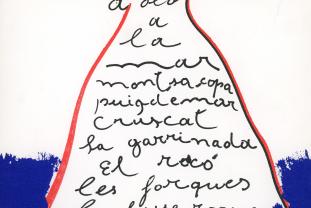 a
la
mar
montsacopa
puig de mar
cruscat
la garrinada
El rocó
les forques